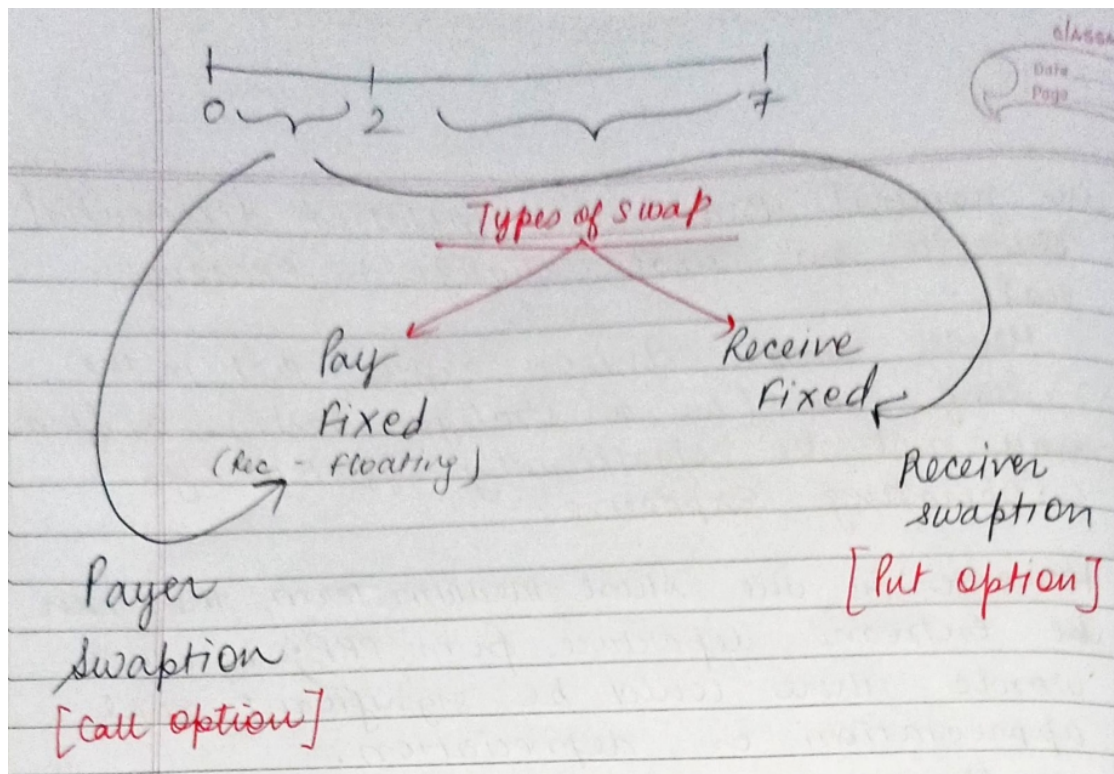 classm
Date
Page
0 2 7
Types of swap
Pay
Fixed
(Rec - floating)
Receive
Fixed
Receiver
swaption
[Put option]
Payer
swaption
[Call option]